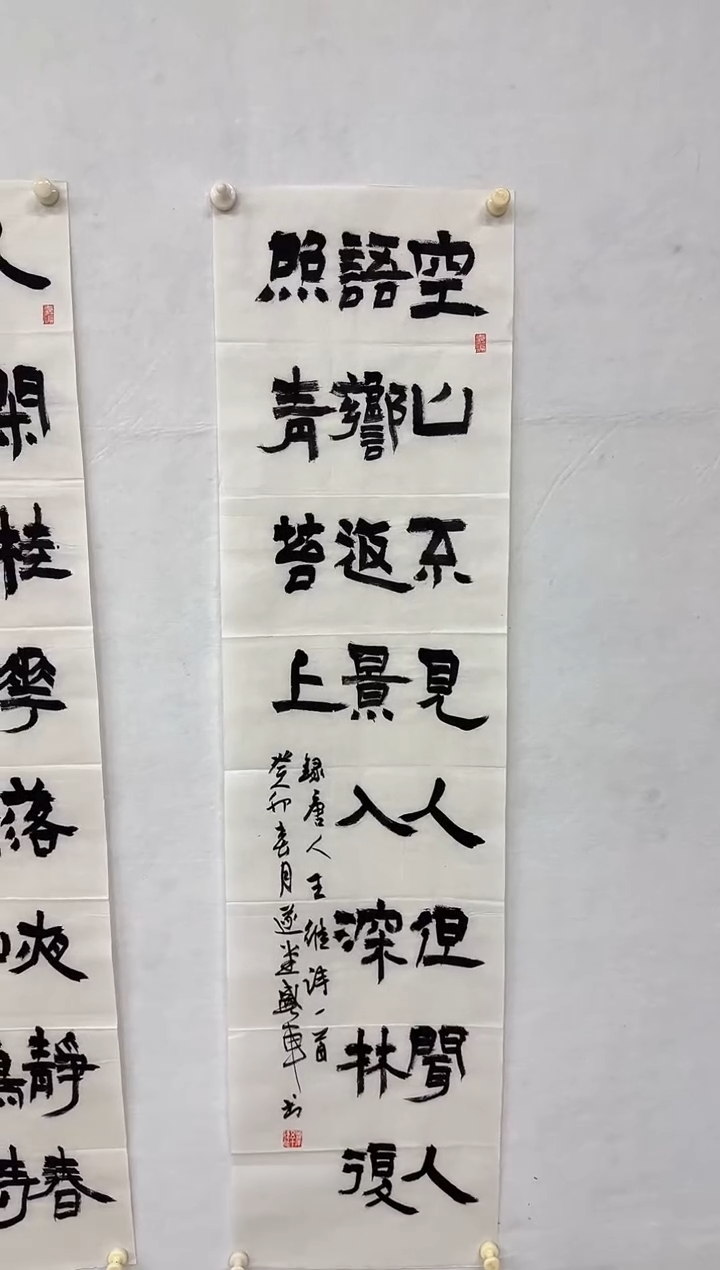 空山不見人但聞人
語響返景入深林復
照青苔上
錄唐人王維詩一首
癸卯春月遂堂軍书
人閑桂華落夜靜春